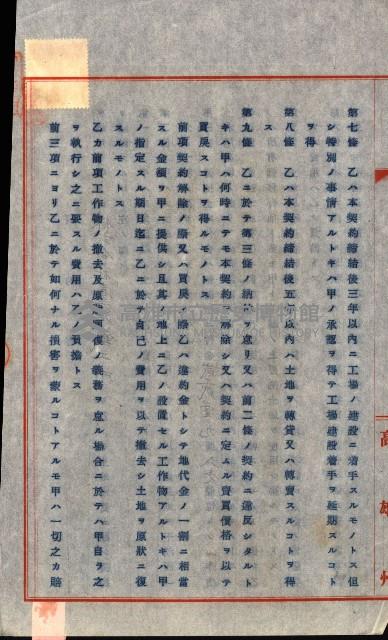 第七條　乙ハ本契約締結後三年以內ニ工場ノ建設ニ着手スルモノトス但
シ特別ノ事情アルトキハ甲ノ承認ヲ得テ工場建設着手ヲ延期スルコト
ヲ得
第八條　乙ハ本契約締結後五年以內ハ土地ヲ轉貸又ハ轉賣スルコトヲ得
ス
第九條　乙ニ於テ第三條ノ納付ヲ怠リ又ハ前二條ノ契約ニ違反シタルト
キハ甲ハ何時ニテモ本契約ヲ解除シ又ハ契約ニ定ムル賣買價格ヲ以テ
買戾スコトヲ得ルモノトス
前項契約解除ノ際又ハ買戾ノ際乙ハ違約金トシテ地代金ノ一割ニ相當
スル金額ヲ甲ニ提供シ且其ノ地上ニ乙ノ設置セル工作物アルトキハ甲
ノ指定スル期日迄ニ乙ニ於テ自己ノ費用ヲ以テ撤去シ土地ヲ原狀ニ復
スルモノトス
乙カ前項工作物ノ撤去及原狀回復ノ義務ヲ怠ル場合ニ於テハ甲自ラ之
ヲ執行シ之ニ要スル費用ハ乙ノ負擔トス
前三項ニヨリ乙ニ於テ如何ナル損害ヲ蒙ルコトアルモ甲ハ一切之カ賠
高雄州
高雄市立歷史博物館